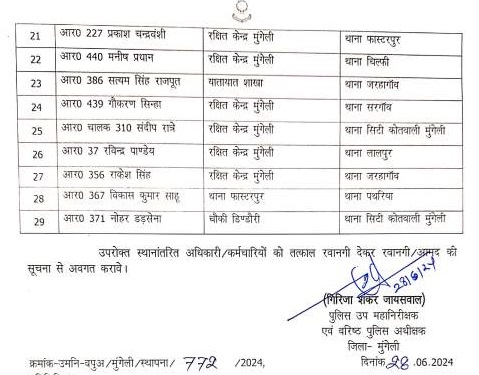 21 आर0 227 प्रकाश चन्द्रवंशी रक्षित केन्द्र मुंगेली थाना फास्टरपुर
22 आर0 440 मनीष प्रधान रक्षित केन्द्र मुंगेली थाना चिल्फी
23 आर0 386 सत्यम सिंह राजपूत यातायात शाखा थाना जरहागॉव
24 आर0 439 गौकरण सिन्हा रक्षित केन्द्र मुंगेली थाना सरगॉव
25 आर0 चालक 310 संदीप रात्रे रक्षित केन्द्र मुंगेली थाना सिटी कोतवाली मुंगेली
26 आर0 37 रविन्द्र पाण्डेय रक्षित केन्द्र मुंगेली थाना लालपुर
27 आर0 356 राकेश सिंह रक्षित केन्द्र मुंगेली थाना जरहागॉव
28 आर0 367 विकास कुमार साहू थाना फास्टरपुर थाना पथरिया
29 आर0 371 नोहर डड़सेना चौकी डिण्डौरी थाना सिटी कोतवाली मुंगेली
उपरोक्त स्थानांतरित अधिकारी/कर्मचारियों को तत्काल रवानगी देकर रवानगी/आमद की
सूचना से अवगत करावे।
28/6/24
(गिरिजा शंकर जायसवाल)
पुलिस उप महानिरीक्षक
एवं वरिष्ठ पुलिस अधीक्षक
जिला- मुंगेली
क्रमांक-उमनि-वपुअ/मुंगेली/स्थापना/ 772 /2024, दिनांक 28.06.2024